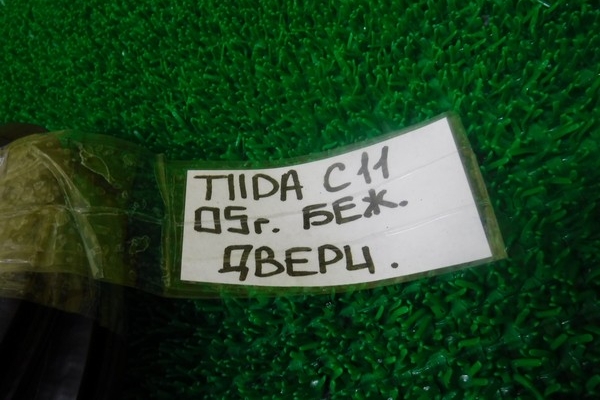 TIIDA C11
05г. БЕЖ.
ДВЕРЦ.